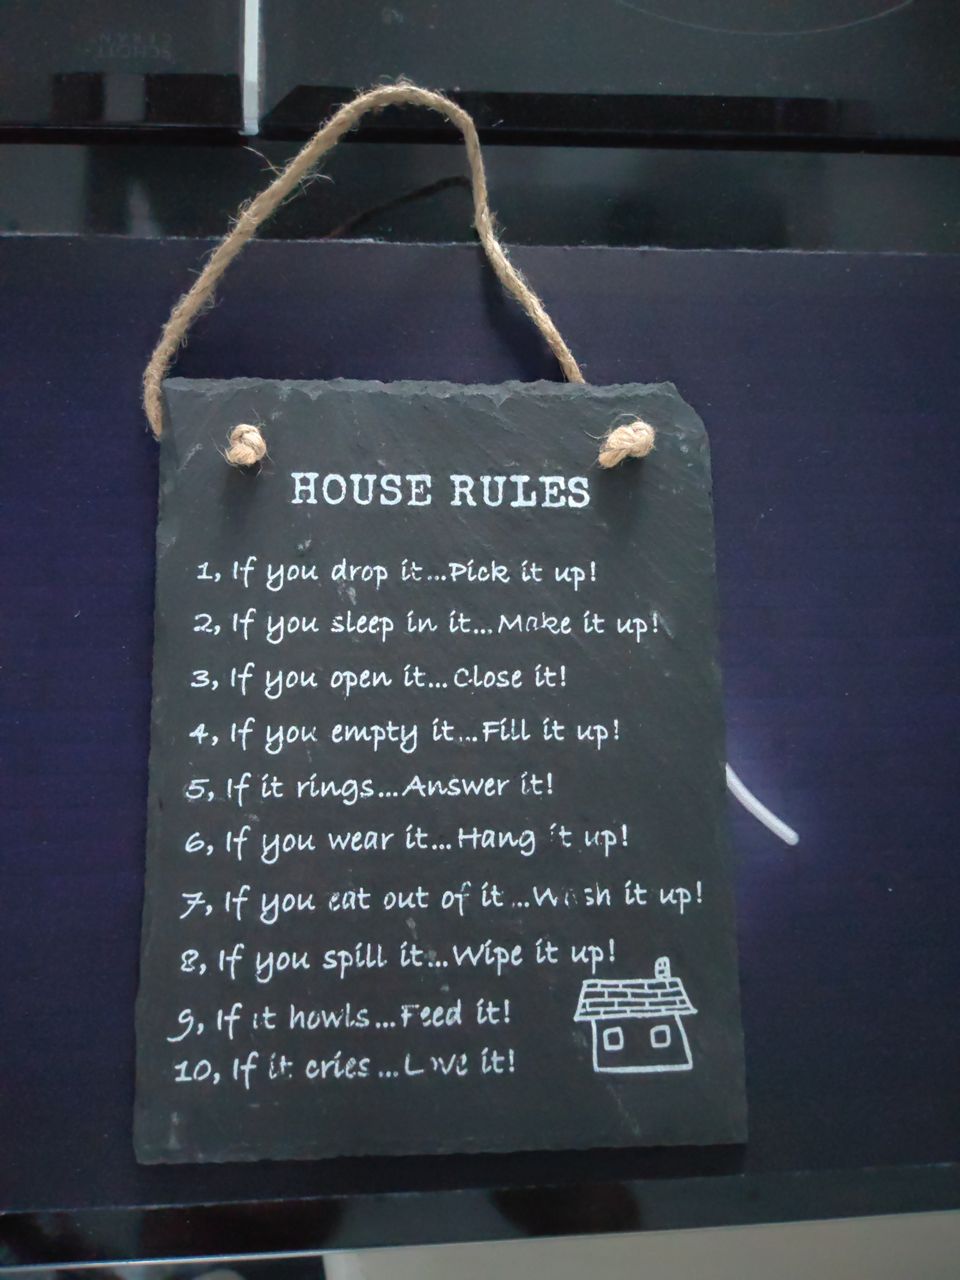 HOUSE RULES
1, If you drop it...Pick it up!
2, If you sleep in it...Make it up!
3, If you open it...Close it!
4, If you empty it...Fill it up!
5, If it rings...Answer it!
6, If you wear it...Hang it up!
7, If you eat out of it...Wash it up!
8, If you spill it...Wipe it up!
9, If it howls...Feed it!
10, If it cries...Love it!